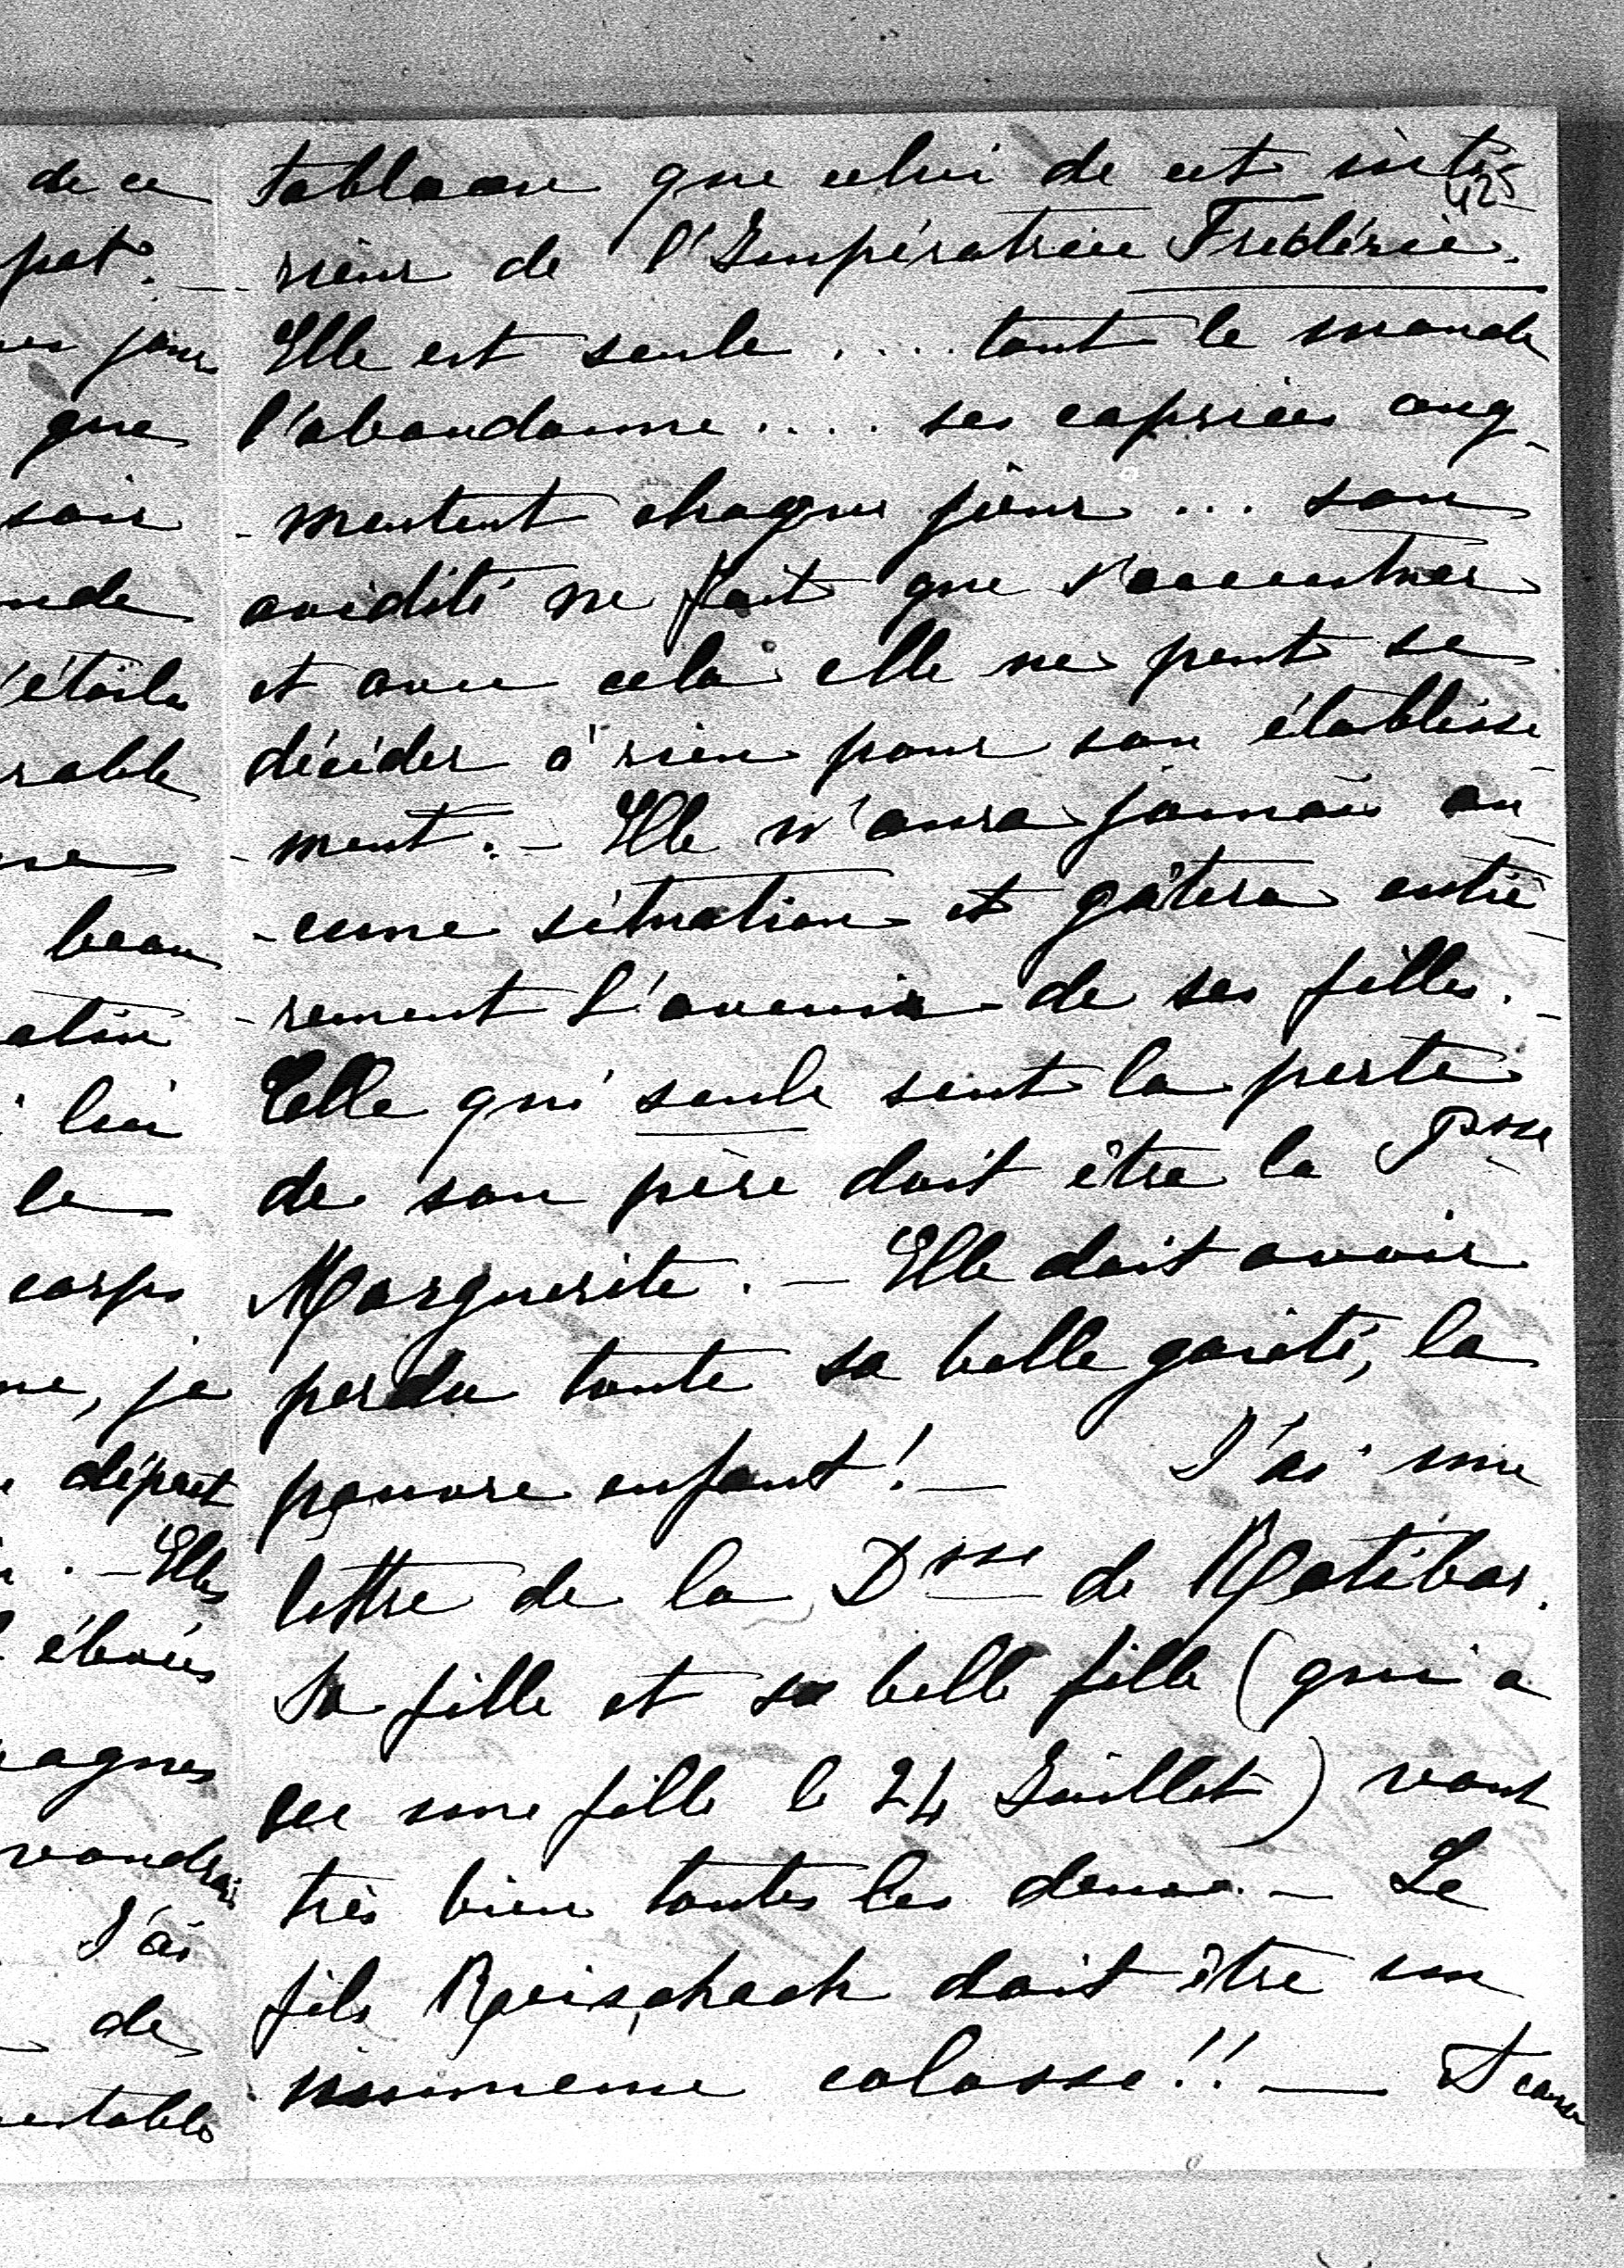 de ce
pet. -
jour
que
soir
nde
étoile
rable
ne
beau
atin
lui
le
corps
me, je
départ
. - Elle
élevés
agnes
voudrai
J'ai
de
entable
425
tableau que celui de cet inté-
rieur de l'Impératrice Frédéric.
Elle est seule .... tout le monde
l'abandonne .... ses caprices aug-
-mentent chaque jour ... son
avidité ne fait que s'accentuer
et avec cela elle ne peut se
décider à rien pour son établisse-
-ment. - Elle n'aura jamais au-
-cune situation et gâtera entiè-
-rement l'avenir de ses filles. -
Celle qui seule sent la perte
de son père doit être la Psse
Marguerite. - Elle doit avoir
perdu toute sa belle gaieté, la
pauvre enfant! - J'ai une
lettre de la Dsse de Ratibor.
Sa fille et sa belle fille (qui a
eu une fille le 24 Juillet) vont
très bien toutes les deux. - Le
fils Reischach doit être un
immense colosse!! -